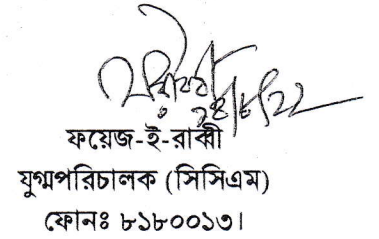 ফয়েজ-ই-রাব্বী
যুগ্মপরিচালক (সিসিএম)
ফোনঃ ৮১৮০০১৩।